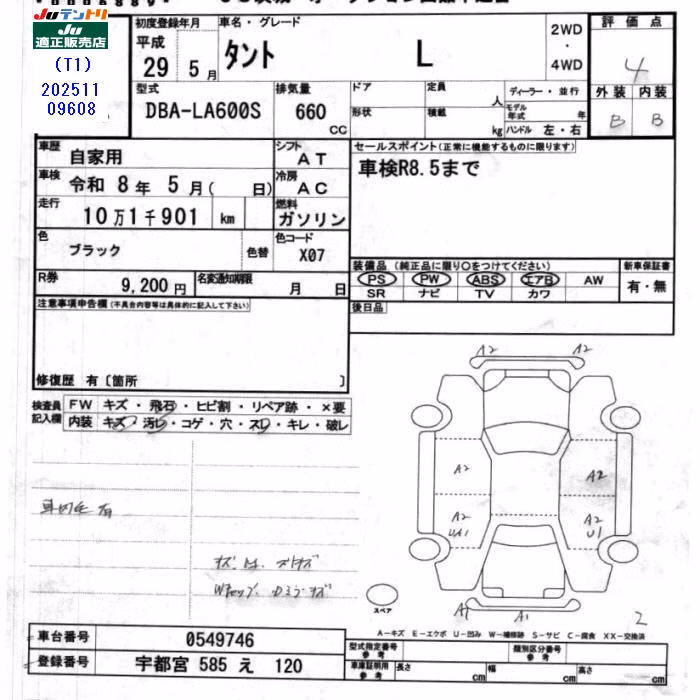 Juテントリ
Ju適正販売店
(T1)
202511
09608
初度登録年月
平成
29 5月
車名・グレード
タント L
2WD
・
4WD
評価点
4
外装 内装
B B
型式
DBA-LA600S
排気量
660
CC
ドア
形状
定員
人
積載
kg
ディーラー・並行
モデル年式 年
ハンドル 左・右
車歴
自家用
シフト
AT
車検
令和 8年 5月( 日)
冷房
AC
走行
10万1千901 km
燃料
ガソリン
色
ブラック
色替
色コード
X07
R券
9,200円
名変通知期限
月 日
セールスポイント(正常に機能するものに限ります)
車検R8.5まで
装備品(純正品に限り○をつけてください)
PS PW ABS エアB AW
SR ナビ TV カワ
新車保証書
有・無
後日品
注意事項申告欄(不具合内容等は具体的に記入して下さい)
修復歴 有〔箇所 〕
検査員記入欄
FW キズ・飛石・ヒビ割・リペア跡・×要
内装 キズ・汚レ・コゲ・穴・スレ・キレ・破レ
A2 A2
A2 A2
A2 A2
UA1 U1
スペア
A1 A1
2
A-キズ E-エクボ U-凹み W-補修跡 S-サビ C-腐食 XX-交換済
車台番号
0549746
登録番号
宇都宮 585 え 120
型式指定番号
参考
類別区分番号
参考
車庫証明用
参考
長さ cm
幅 cm
高さ cm